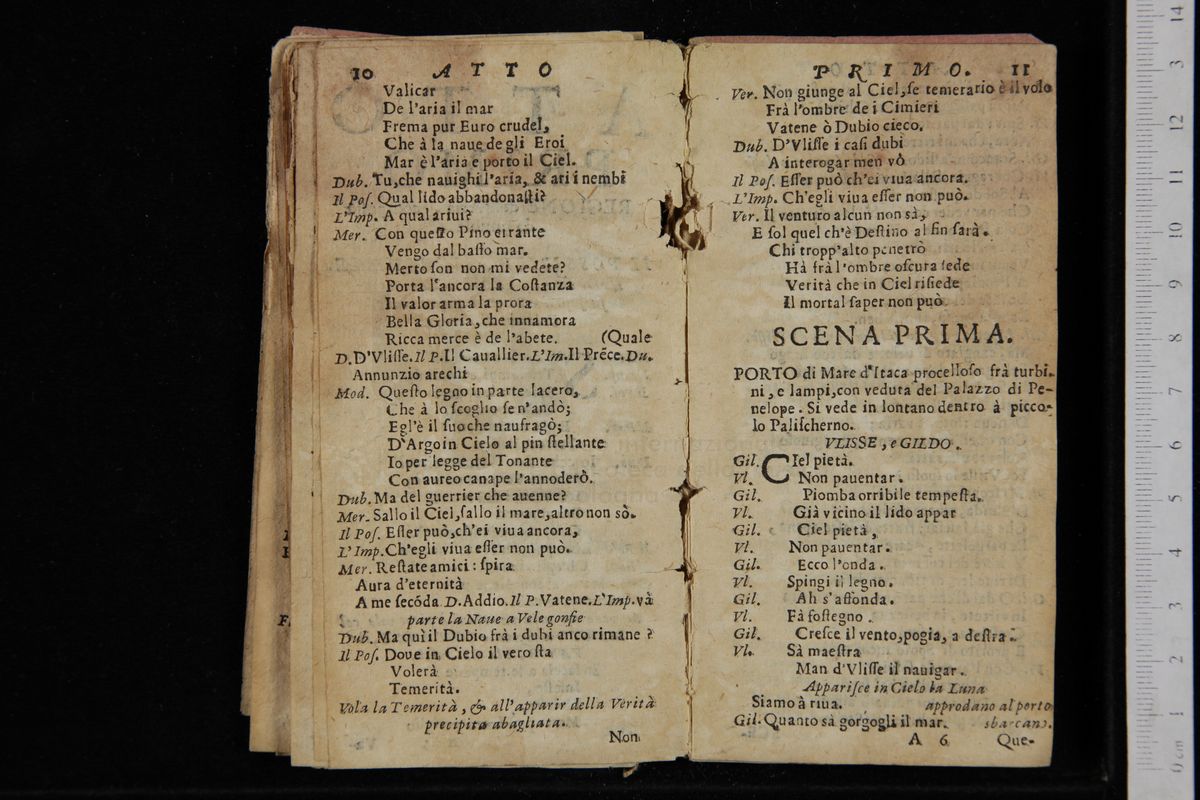 10 ATTO
Valicar
De l'aria il mar
Frema pur Euro crudel,
Che à la naue de gli Eroi
Mar è l'aria e porto il Ciel.
Dub. Tu, che nauighi l'aria, & ari i nembi
Il Pos. Qual lido abbandonasti?
L'Imp. A qual ariui?
Mer. Con questo Pino errante
Vengo dal basso mar.
Merto son non mi vedete?
Porta l'ancora la Costanza
Il valor arma la prora
Bella Gloria, che innamora
Ricca merce è de l'abete. (Quale
D. D'Vlisse. Il P. Il Cauallier. L'Im. Il Préce. Du.
Annunzio arechi
Mod. Questo legno in parte lacero,
Che à lo scoglio se n'andò;
Egl'è il suo che naufragò;
D'Argo in Cielo al pin stellante
Io per legge del Tonante
Con aureo canape l'annoderò.
Dub. Ma del guerrier che auenne?
Mer. Sallo il Ciel, sallo il mare, altro non sò.
Il Pos. Esser può, ch'ei viua ancora,
L'Imp. Ch'egli viua esser non può.
Mer. Restate amici: spira
Aura d'eternità
A me secóda D. Addio. Il P. Vatene. L'Imp. và
parte la Naue a Vele gonfie
Dub. Ma quì il Dubio frà i dubi anco rimane?
Il Pos. Doue in Cielo il vero sta
Volerà
Temerità.
Vola la Temerità, & all'apparir della Verità
precipita abagliata.
Non
PRIMO. 11
Ver. Non giunge al Ciel, se temerario è il volo
Frà l'ombre de i Cimieri
Vatene ò Dubio cieco.
Dub. D'Vlisse i casi dubi
A interogar men vò
Il Pos. Esser può ch'ei viua ancora.
L'Imp. Ch'egli viua esser non può.
Ver. Il venturo alcun non sà,
E sol quel ch'è Destino al fin sarà.
Chi tropp'alto penetrò
Hà frà l'ombre oscura sede
Verità che in Ciel risiede
Il mortal saper non può.
SCENA PRIMA.
PORTO di Mare d'Itaca procelloso frà turbi-
ni, e lampi, con veduta del Palazzo di Pe-
nelope. Si vede in lontano dentro à picco-
lo Palischerno.
VLISSE, e GILDO.
Gil. CIel pietà.
Vl. Non pauentar.
Gil. Piomba orribile tempesta.
Vl. Già vicino il lido appar
Gil. Ciel pietà,
Vl. Non pauentar.
Gil. Ecco l'onda.
Vl. Spingi il legno.
Gil. Ah s'affonda.
Vl. Fà sostegno.
Gil. Cresce il vento, pogia, a destra.
Vl. Sà maestra
Man d'Vlisse il nauigar.
Apparisce in Cielo la Luna
Siamo à riua. approdano al porto
Gil. Quanto sà gorgogli il mar. sbarcano.
A 6 Que-